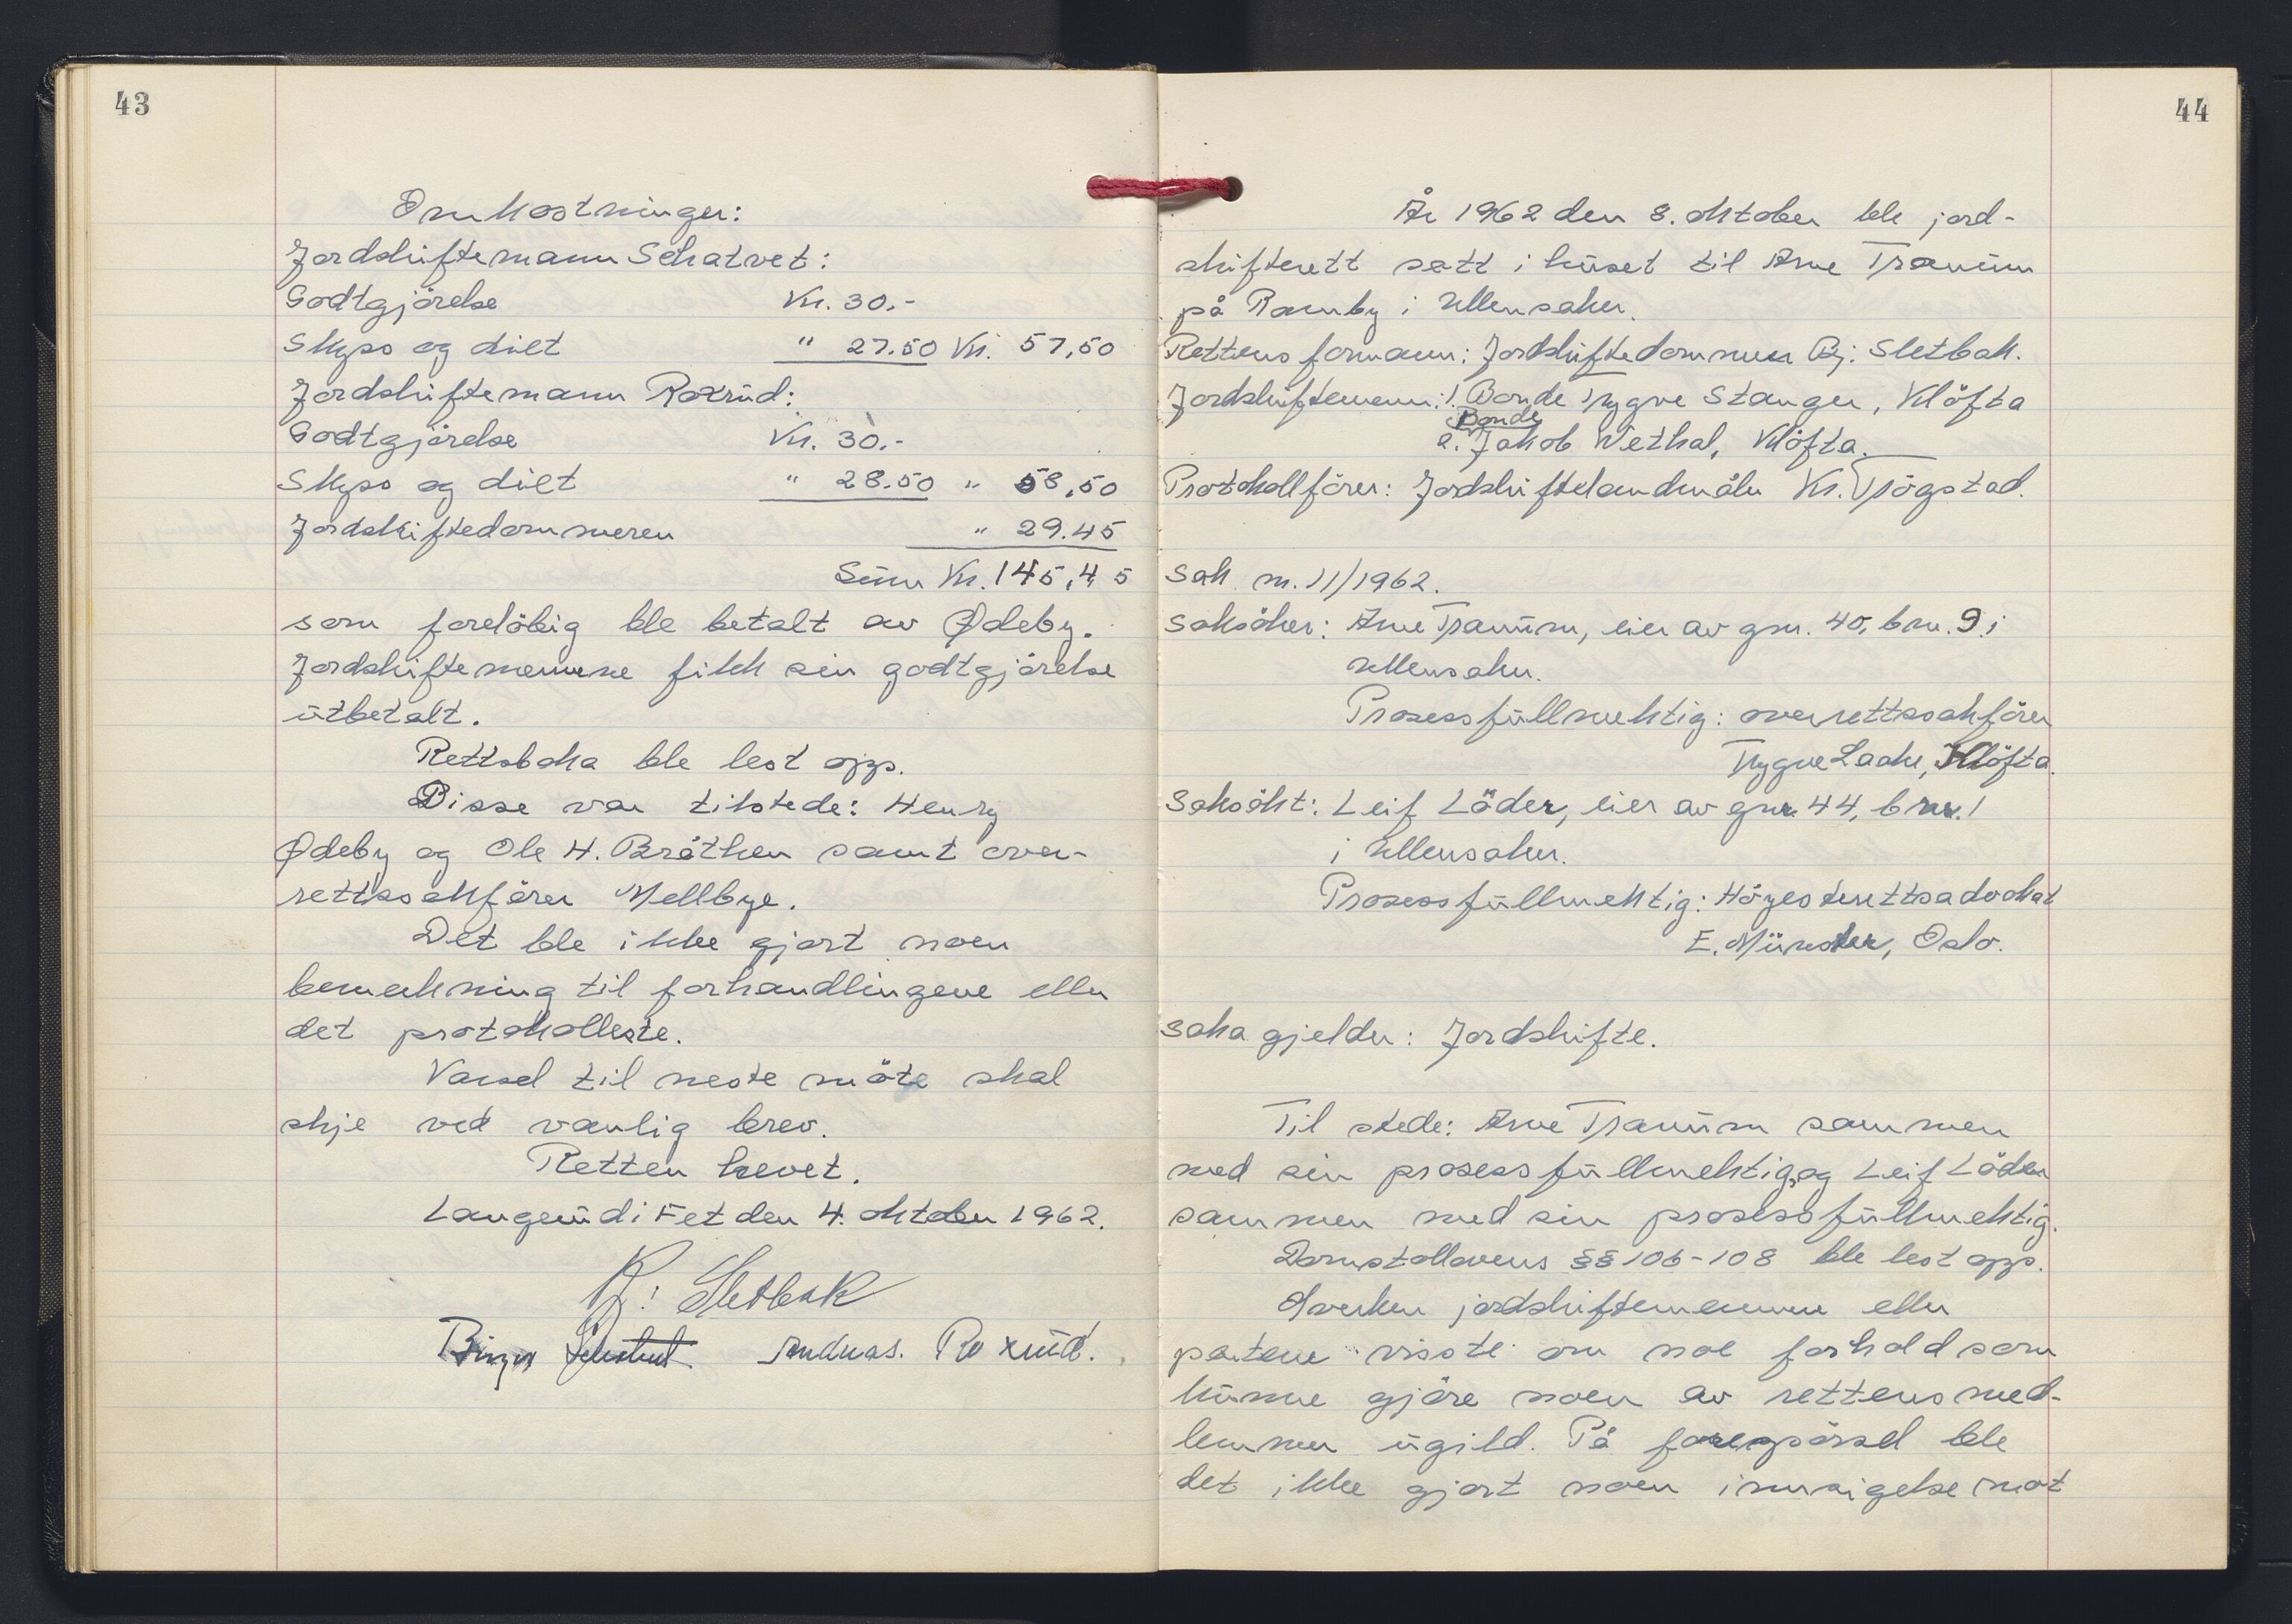 43
Omkostninger:
Jordskiftemann Schatvet:
Godtgjörelse Kr. 30.-
Skyss og diet " 27.50 Kr. 57,50
Jordskiftemann Roxrud:
Godtgjörelse Kr. 30.-
Skyss og diet " 28.50 " 58,50
Jordskiftedommeren " 29.45
Sum Kr. 145,45
som forelöbig ble betalt av Ødeby.
Jordskiftemennene fikk sin godtgjörelse
utbetalt.
Rettsboka ble lest opp.
Disse var tilstede: Henry
Ødeby og Ole H. Bråthen samt over-
rettssakförer Mellbye.
Det ble ikke gjort noen
bemerkning til forhandlingene eller
det protokolleste.
Varsel til neste möte skal
skje ved vanlig brev.
Retten hevet.
Langerud i Fet den 4. oktober 1962.
Bj: Sletbak
Birger Andreas. Roxrud.
44
År 1962 den 8. oktober ble jord-
skifterett satt i huset til Arne Tranum
på Ramby i Ullensaker.
Rettens formann: Jordskiftedommer Bj: Sletbak.
Jordskiftemenn: 1. Bonde Trygve Stanger, Klöfta
Bonde
2. Jakob Wethal, Klöfta.
Protokollförer: Jordskiftelandmåler Kr. Trögstad.
Sak nr. 11/1962.
Saksöker: Arne Tranum, eier av gnr. 40, bnr. 9 i
Ullensaker.
Prosessfullmektig: overrettssakförer
Trygve Laake, Klöfta.
Saksökt: Leif Löder, eier av gnr. 44, bnr. 1
i Ullensaker.
Prosessfullmektig: Höyesterettsadvokat
E. Münster, Oslo.
Saka gjelder: Jordskifte.
Til stede: Arne Tranum sammen
med sin prosessfullmektig, og Leif Löder
sammen med sin prosessfullmektig.
Domstollovens §§ 106-108 ble lest opp.
Hverken jordskiftemennene eller
partene visste om noe forhold som
kunne gjöre noen av rettens med-
lemmer ugild. På forespörsel ble
det ikke gjort noen innsigelse mot